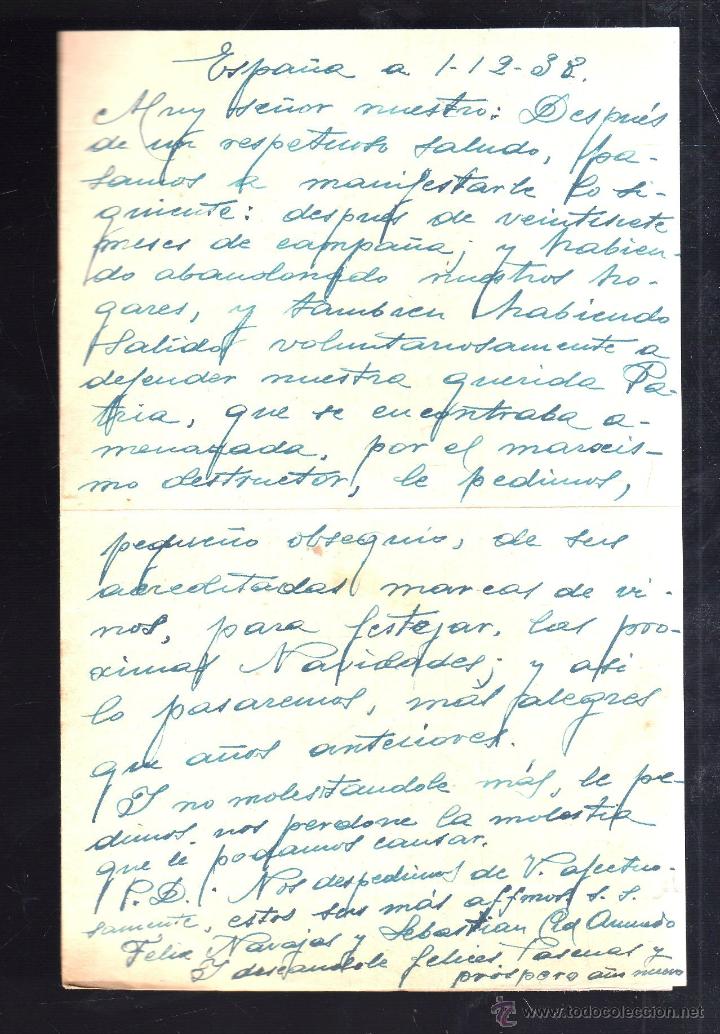 España a 1-12-38.
Muy señor nuestro: Después
de un respetuoso saludo, pa-
samos a manifestarle lo si-
guiente: despues de veintisiete
meses de campaña; y habien-
do abandonado nuestros ho-
gares, y tambien habiendo
salido voluntariosamente a
defender nuestra querida Pa-
tria, que se encontraba a-
menazada, por el marxis-
mo destructor, le pedimos,
pequeño obsequio, de sus
acreditadas marcas de vi-
nos, para festejar, las pro-
ximas Navidades; y asi
lo pasaremos, más alegres
que años anteriores.
Y no molestandole más, le pe-
dimos nos perdone la molestia
que le podamos causar.
P.D. Nos despedimos de V. afectuo-
samente, estos sus más affmos s.s.
Felix Navajas y Sebastian
Y deseandole felices Pascuas y
prospero año nuevo
todocoleccion
www.todocoleccion.net